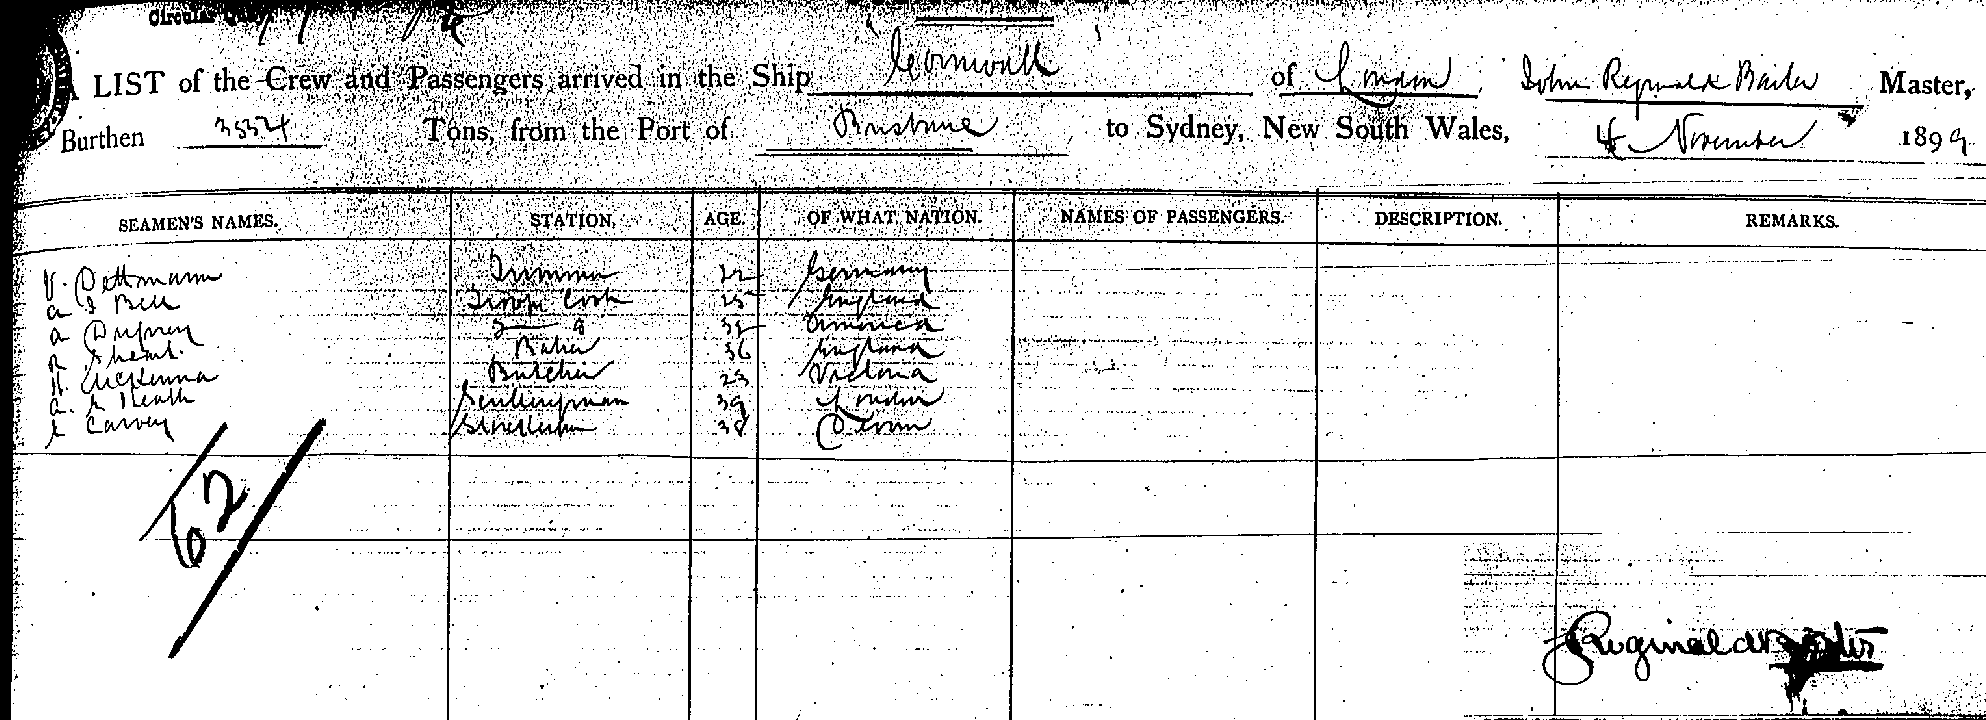 Circular Quay,
A LIST of the Crew and Passengers arrived in the Ship "Cornwall" of London, John Reginald Master,
Burthen Tons, from the Port of Brisbane to Sydney, New South Wales, 4 November 1899
SEAMEN'S NAMES. STATION. AGE. OF WHAT NATION. NAMES OF PASSENGERS. DESCRIPTION. REMARKS.
V. Dettmann Trimmer 22 Germany
A J Bell Troop Cook 25 England
A America
R Baker 36 England
H. McKenna Butcher 23 Victoria
A. Heath 39 London
E Carvey Storekeeper 38 Devon
62
J Reginald